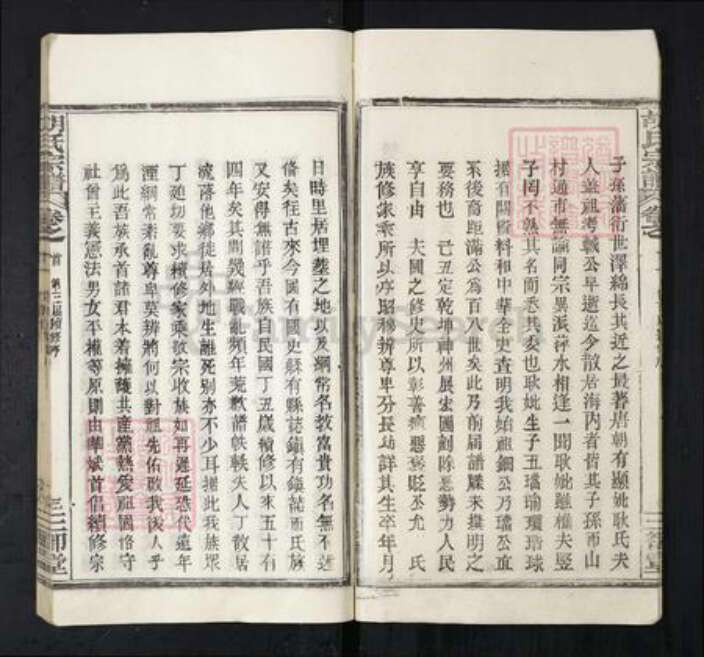 子孫蕃衍世澤綿長其近之最著唐朝有顯妣耿氏夫
人並祖考毓公早逝迄今散居海內者皆其子孫而山
村通市無論同宗異派萍水相逢一聞耿妣雖樵夫豎
子罔不熟其名而悉其衷也耿妣生子五璿瑜瓚琀球
據有關資料和中華全史查明我始祖鋼公乃璿公直
系後裔距滿公為百八世矣此乃前屆譜牒未載明之
要務也 己丑定乾坤神州展宏圖剷除惡勢力人民
享自由 夫國之修史所以彰善癉惡褒貶公允 氏
族修家乘所以序昭穆辨尊卑分長幼詳其生卒年月
日時里居埋塟之地以及綱常名教富貴功名無不述
俻矣往古來今國有國史縣有縣誌鎮有鎮誌而氏族
又安得無譜乎吾族自民國丁丑歲續修以來五十有
四年矣其間幾經戰亂頻年荒歉譜帙軼失人丁散居
流落他鄉徙居外地生離死別亦不少耳據此我族眾
丁廹切要求續修家乘敬宗收族如再遲延恐代遠年
湮綱常紊亂尊卑莫辨將何以對祖先佑啟我後人乎
爲此吾族承首諸君本着擁護共產黨熱愛祖國恪守
社會主義憲法男女平權等原則由華斌首倡續修宗
胡氏宗譜 卷之 首 第三屆續修序
三 三師堂